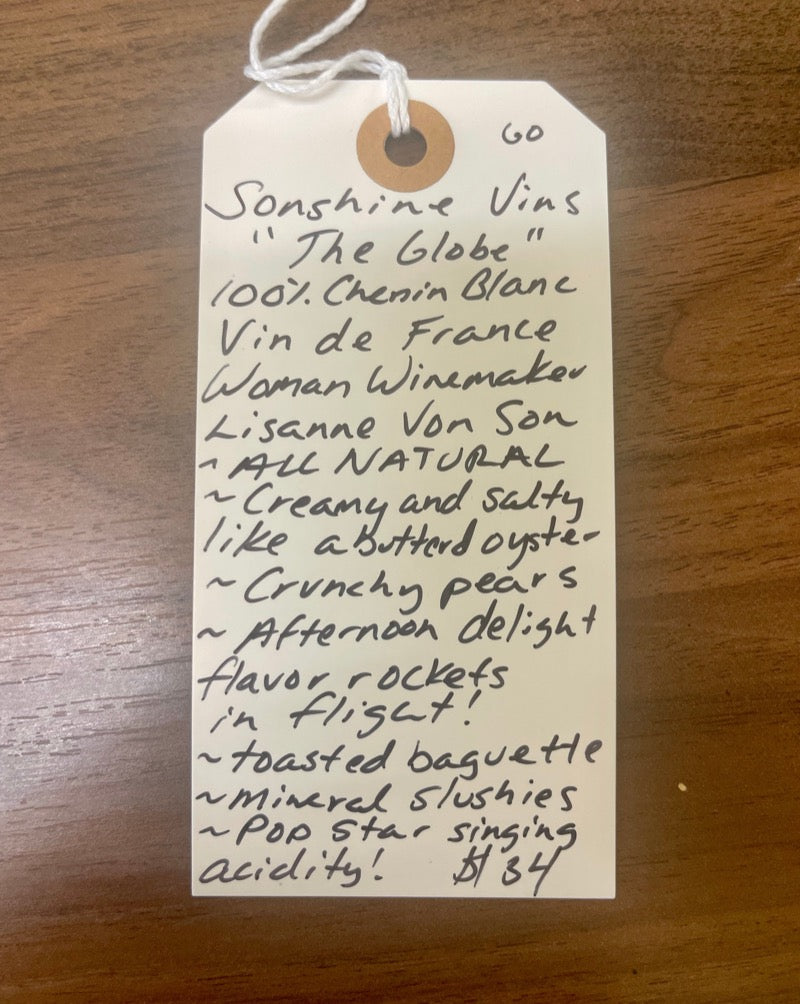 GO
Sonshine Vins
"The Globe"
100% Chenin Blanc
Vin de France
Woman Winemaker
Lisanne Von Son
~ ALL NATURAL
~ Creamy and salty
like a butterd oyster
~ Crunchy pears
~ Afternoon delight
flavor rockets
in flight!
~ toasted baguette
~ mineral slushies
~ Pop star singing
acidity! $34